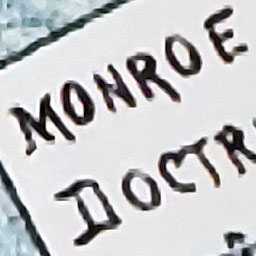 MONROE
DOCTR